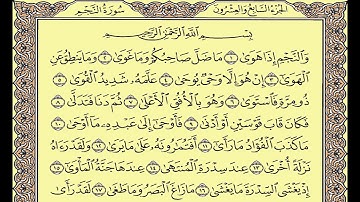 الجزء السابع والعشرون سورة النجم
بِسْمِ اللَّهِ الرَّحْمَٰنِ الرَّحِيمِ
وَالنَّجْمِ إِذَا هَوَىٰ ١ مَا ضَلَّ صَاحِبُكُمْ وَمَا غَوَىٰ ٢ وَمَا يَنطِقُ عَنِ
الْهَوَىٰ ٣ إِنْ هُوَ إِلَّا وَحْيٌ يُوحَىٰ ٤ عَلَّمَهُ شَدِيدُ الْقُوَىٰ ٥
ذُو مِرَّةٍ فَاسْتَوَىٰ ٦ وَهُوَ بِالْأُفُقِ الْأَعْلَىٰ ٧ ثُمَّ دَنَا فَتَدَلَّىٰ ٨
فَكَانَ قَابَ قَوْسَيْنِ أَوْ أَدْنَىٰ ٩ فَأَوْحَىٰ إِلَىٰ عَبْدِهِ مَا أَوْحَىٰ ١٠
مَا كَذَبَ الْفُؤَادُ مَا رَأَىٰ ١١ أَفَتُمَارُونَهُ عَلَىٰ مَا يَرَىٰ ١٢ وَلَقَدْ رَآهُ
نَزْلَةً أُخْرَىٰ ١٣ عِندَ سِدْرَةِ الْمُنتَهَىٰ ١٤ عِندَهَا جَنَّةُ الْمَأْوَىٰ ١٥
إِذْ يَغْشَى السِّدْرَةَ مَا يَغْشَىٰ ١٦ مَا زَاغَ الْبَصَرُ وَمَا طَغَىٰ ١٧ لَقَدْ رَأَىٰ